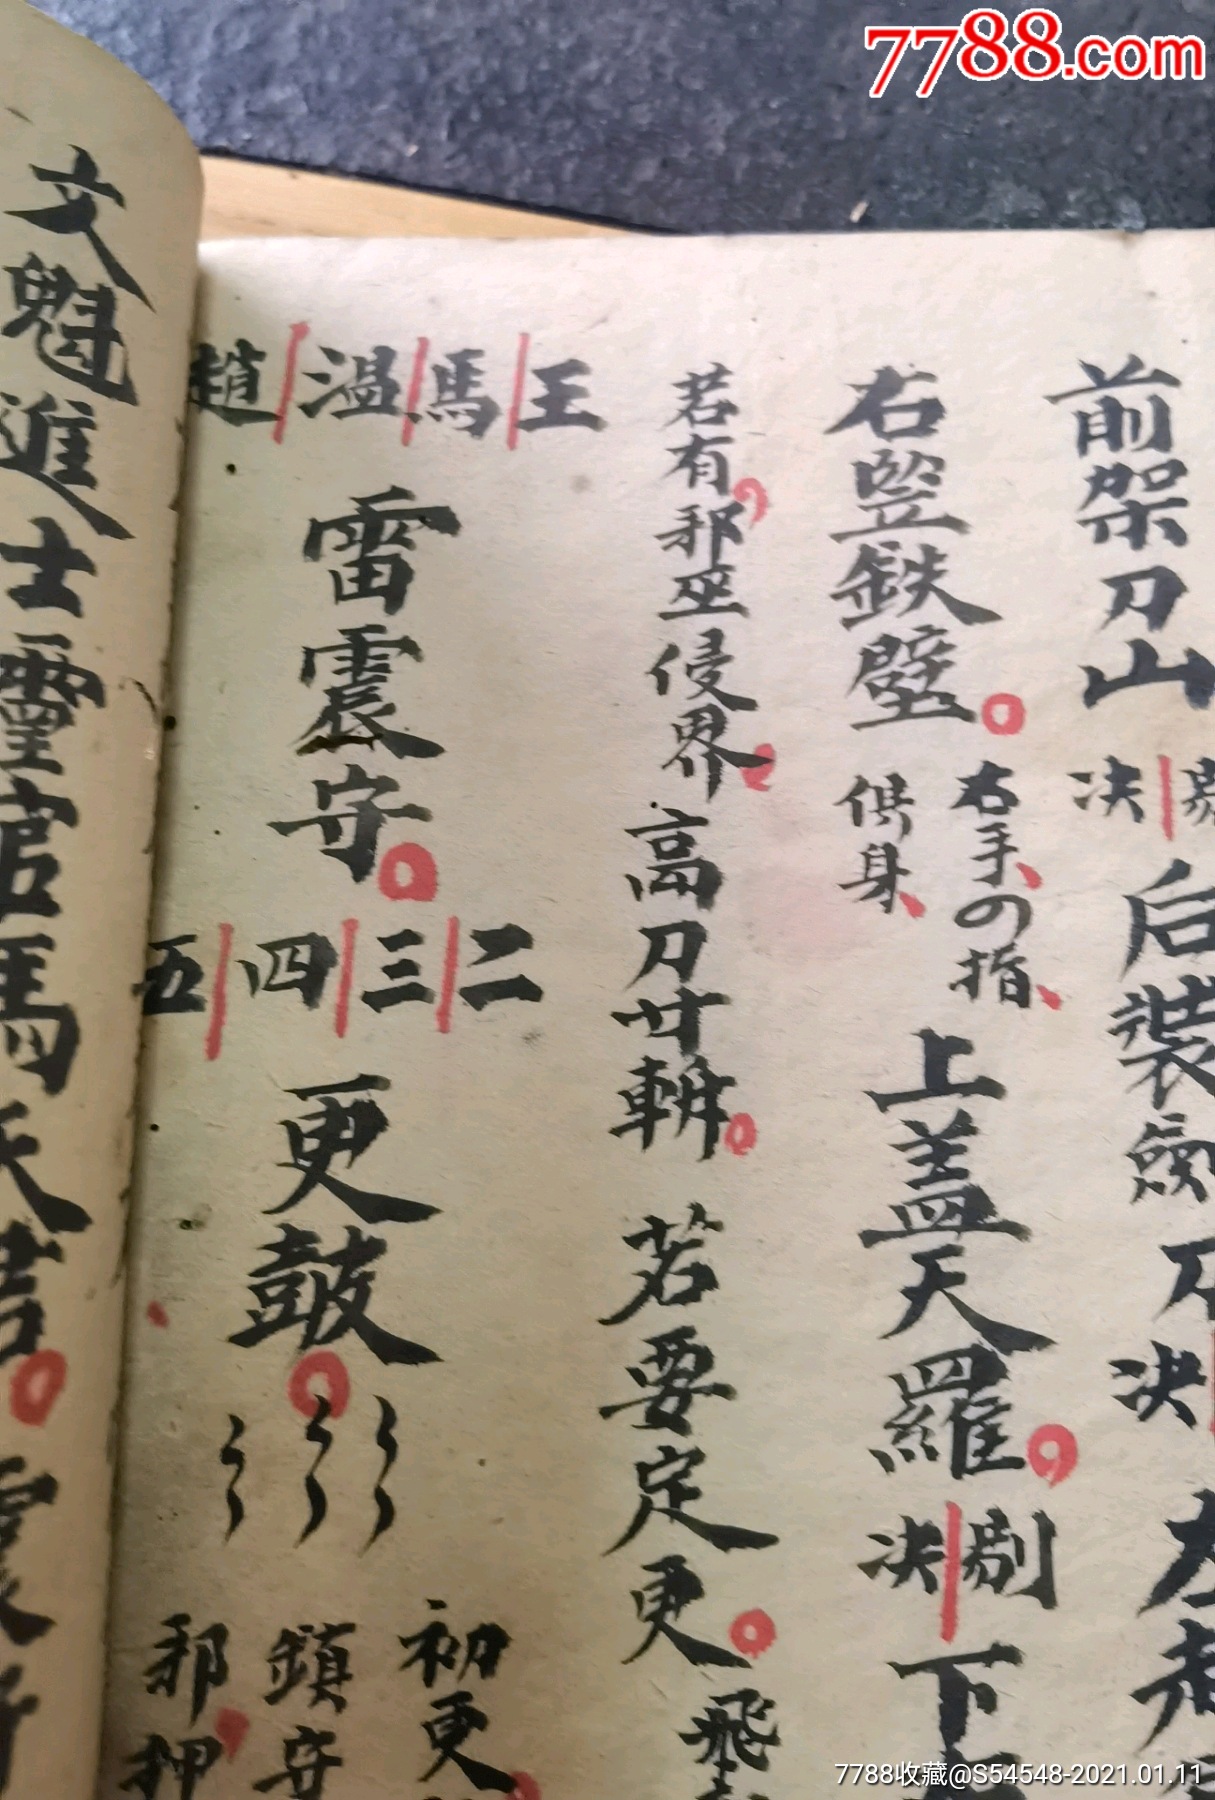 7788.com
前架刀山
决
后装
决
右竖鉄壁
右手の指
俱身
上盖天羅
剔
决
下
若有邪巫侵界
高刀廿
若要定更
飛
王
馬
温
趙
雷震守
二
三
四
五
更鼓
初更
鎮守
邪押
文魁進士靈官馬
7788收藏@S54548-2021.01.11